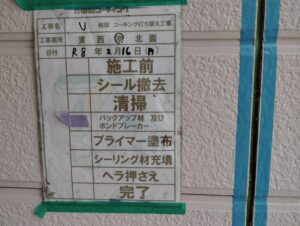 工事名 U 様邸 コーキング打ち替え工事
工事箇所 東 西 南 北 面
日付 R8年2月16日(月)
施工前
シール撤去
清掃
バックアップ材 及び
ボンドブレーカー
プライマー塗布
シーリング材充填
ヘラ押さえ
完了